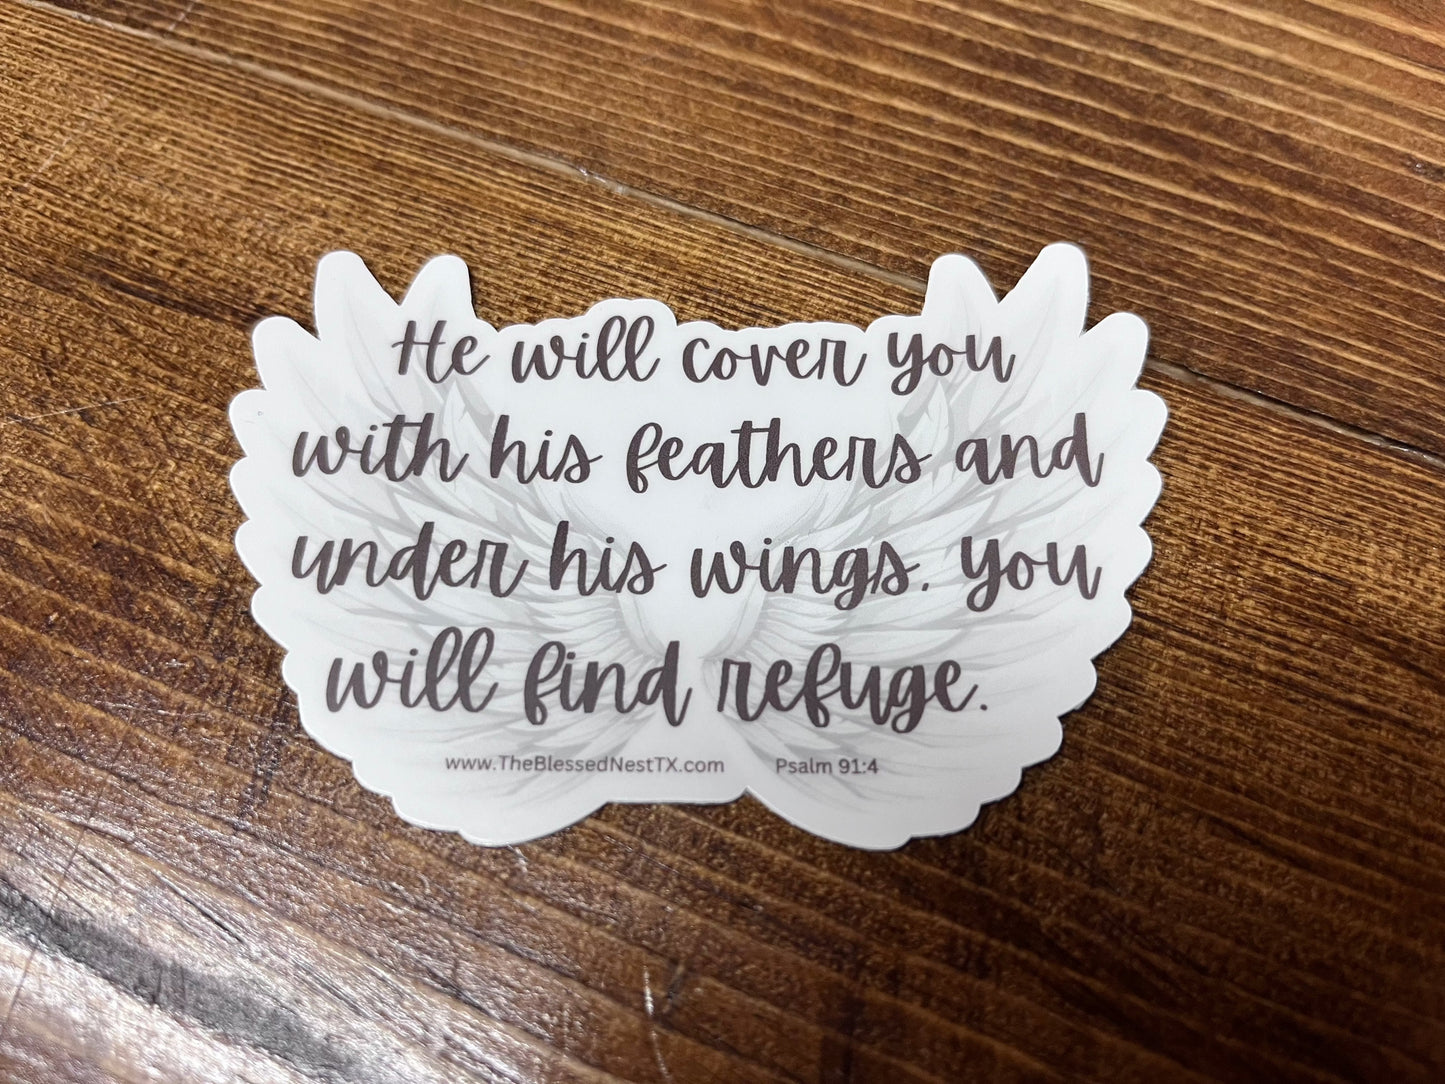 He will cover you
with his feathers and
under his wings. You
will find refuge.
www.TheBlessedNestTX.com Psalm 91:4